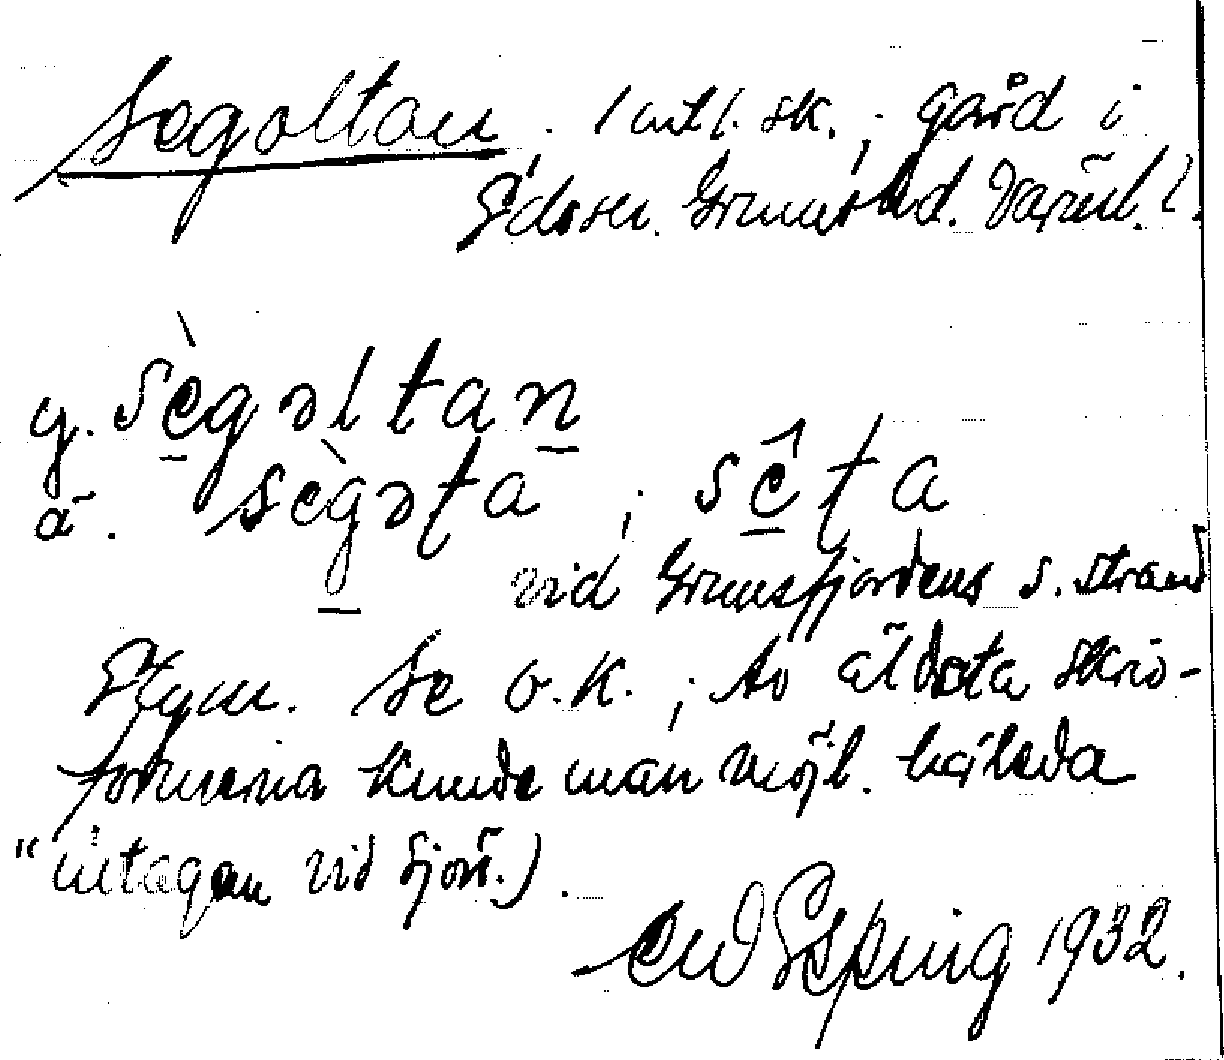 Segoltan, 1 mtl. sk.; gård i
Edsser. Grums hd. Värml. l.
y. sègəltan
ä. sègəta ; sêta
vid Grumsfjordens s. strand
Etym. Se o.K. ; Av äldsta skriv-
formerna kunde man möjl. härleda
"intagan vid sjön.)
CWEsping 1932.